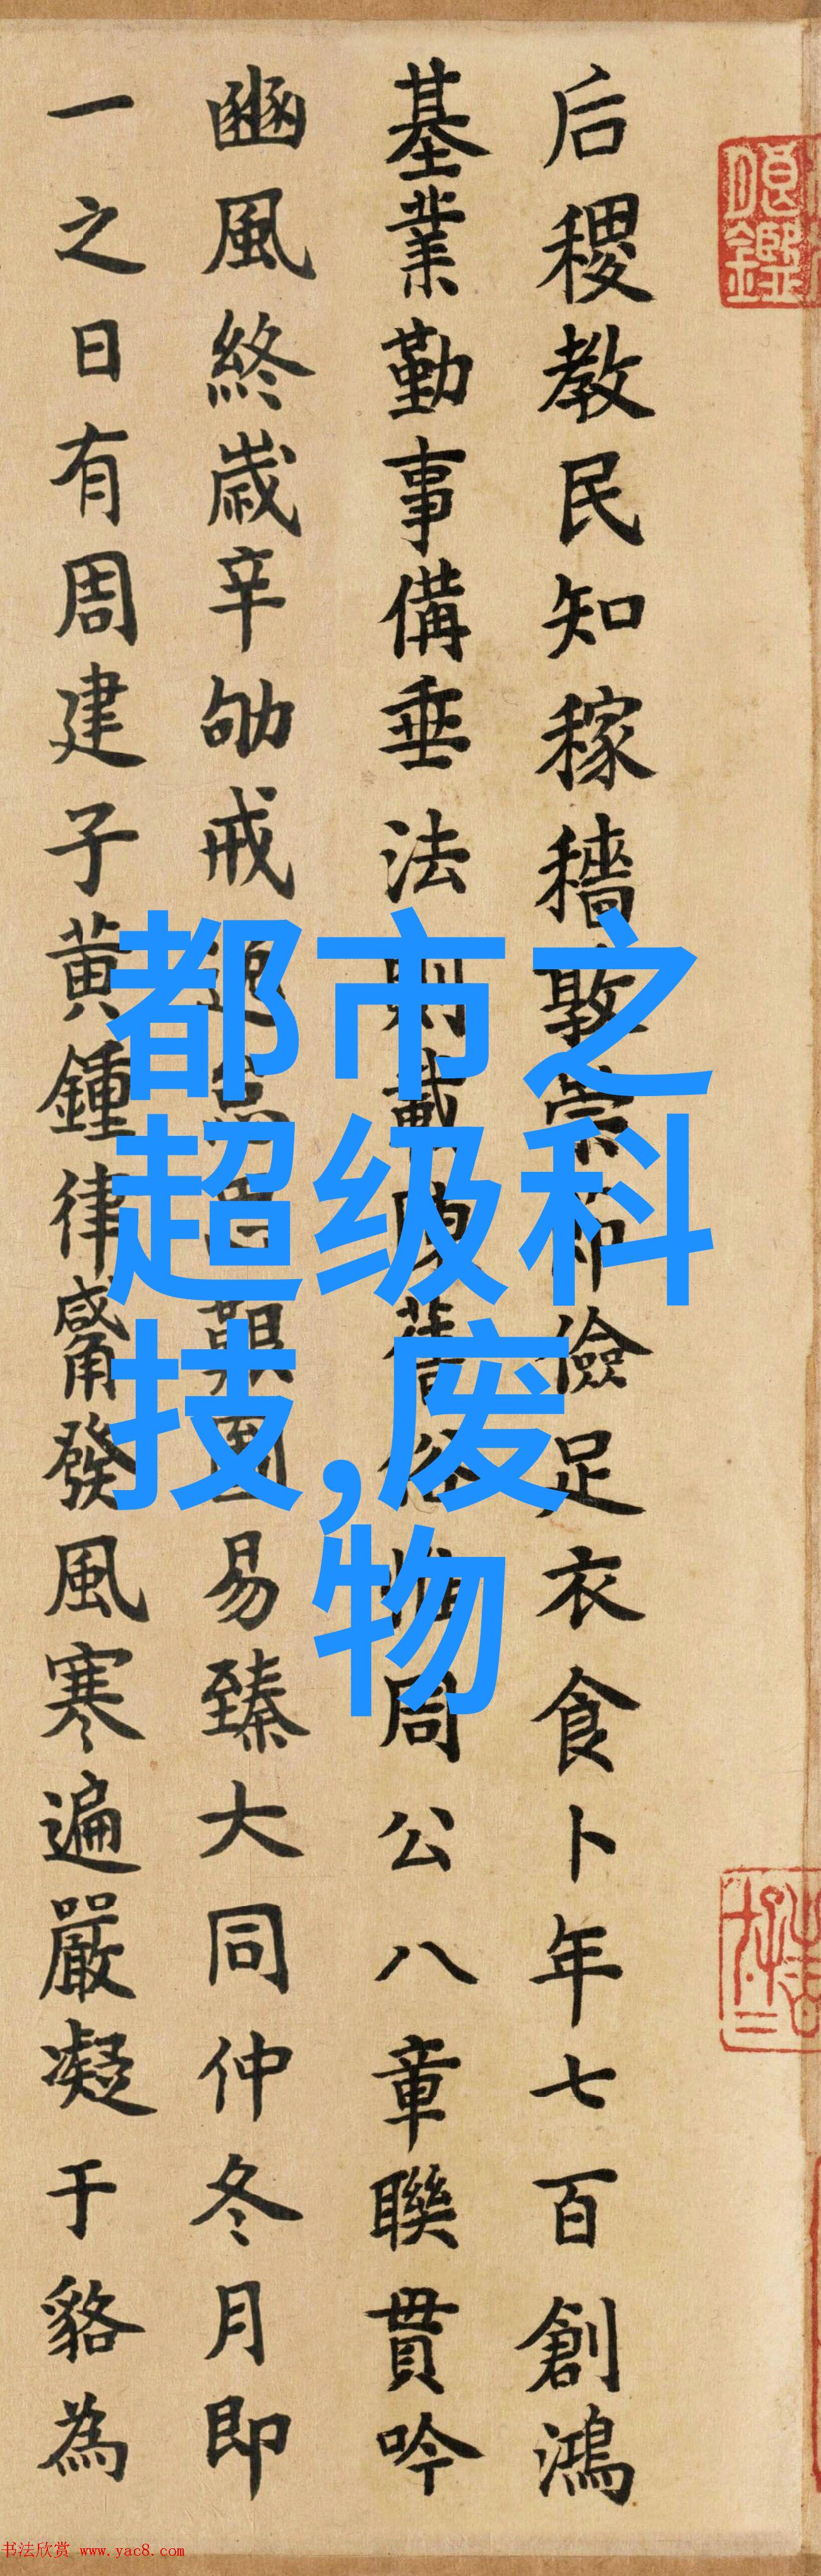 后稷教民知稼穡敦崇節儉足衣食卜年七百創鴻
基業勤事備垂法則載陳舊俗惟周公八章聯貫吟
豳風終歲辛劬戒逸艱圖易臻大同仲冬月即
一之日有周建子黃鍾律觱發風寒遍嚴凝于貉為
都市之
超级科
技,废
物
书法欣赏 www.yac8.com